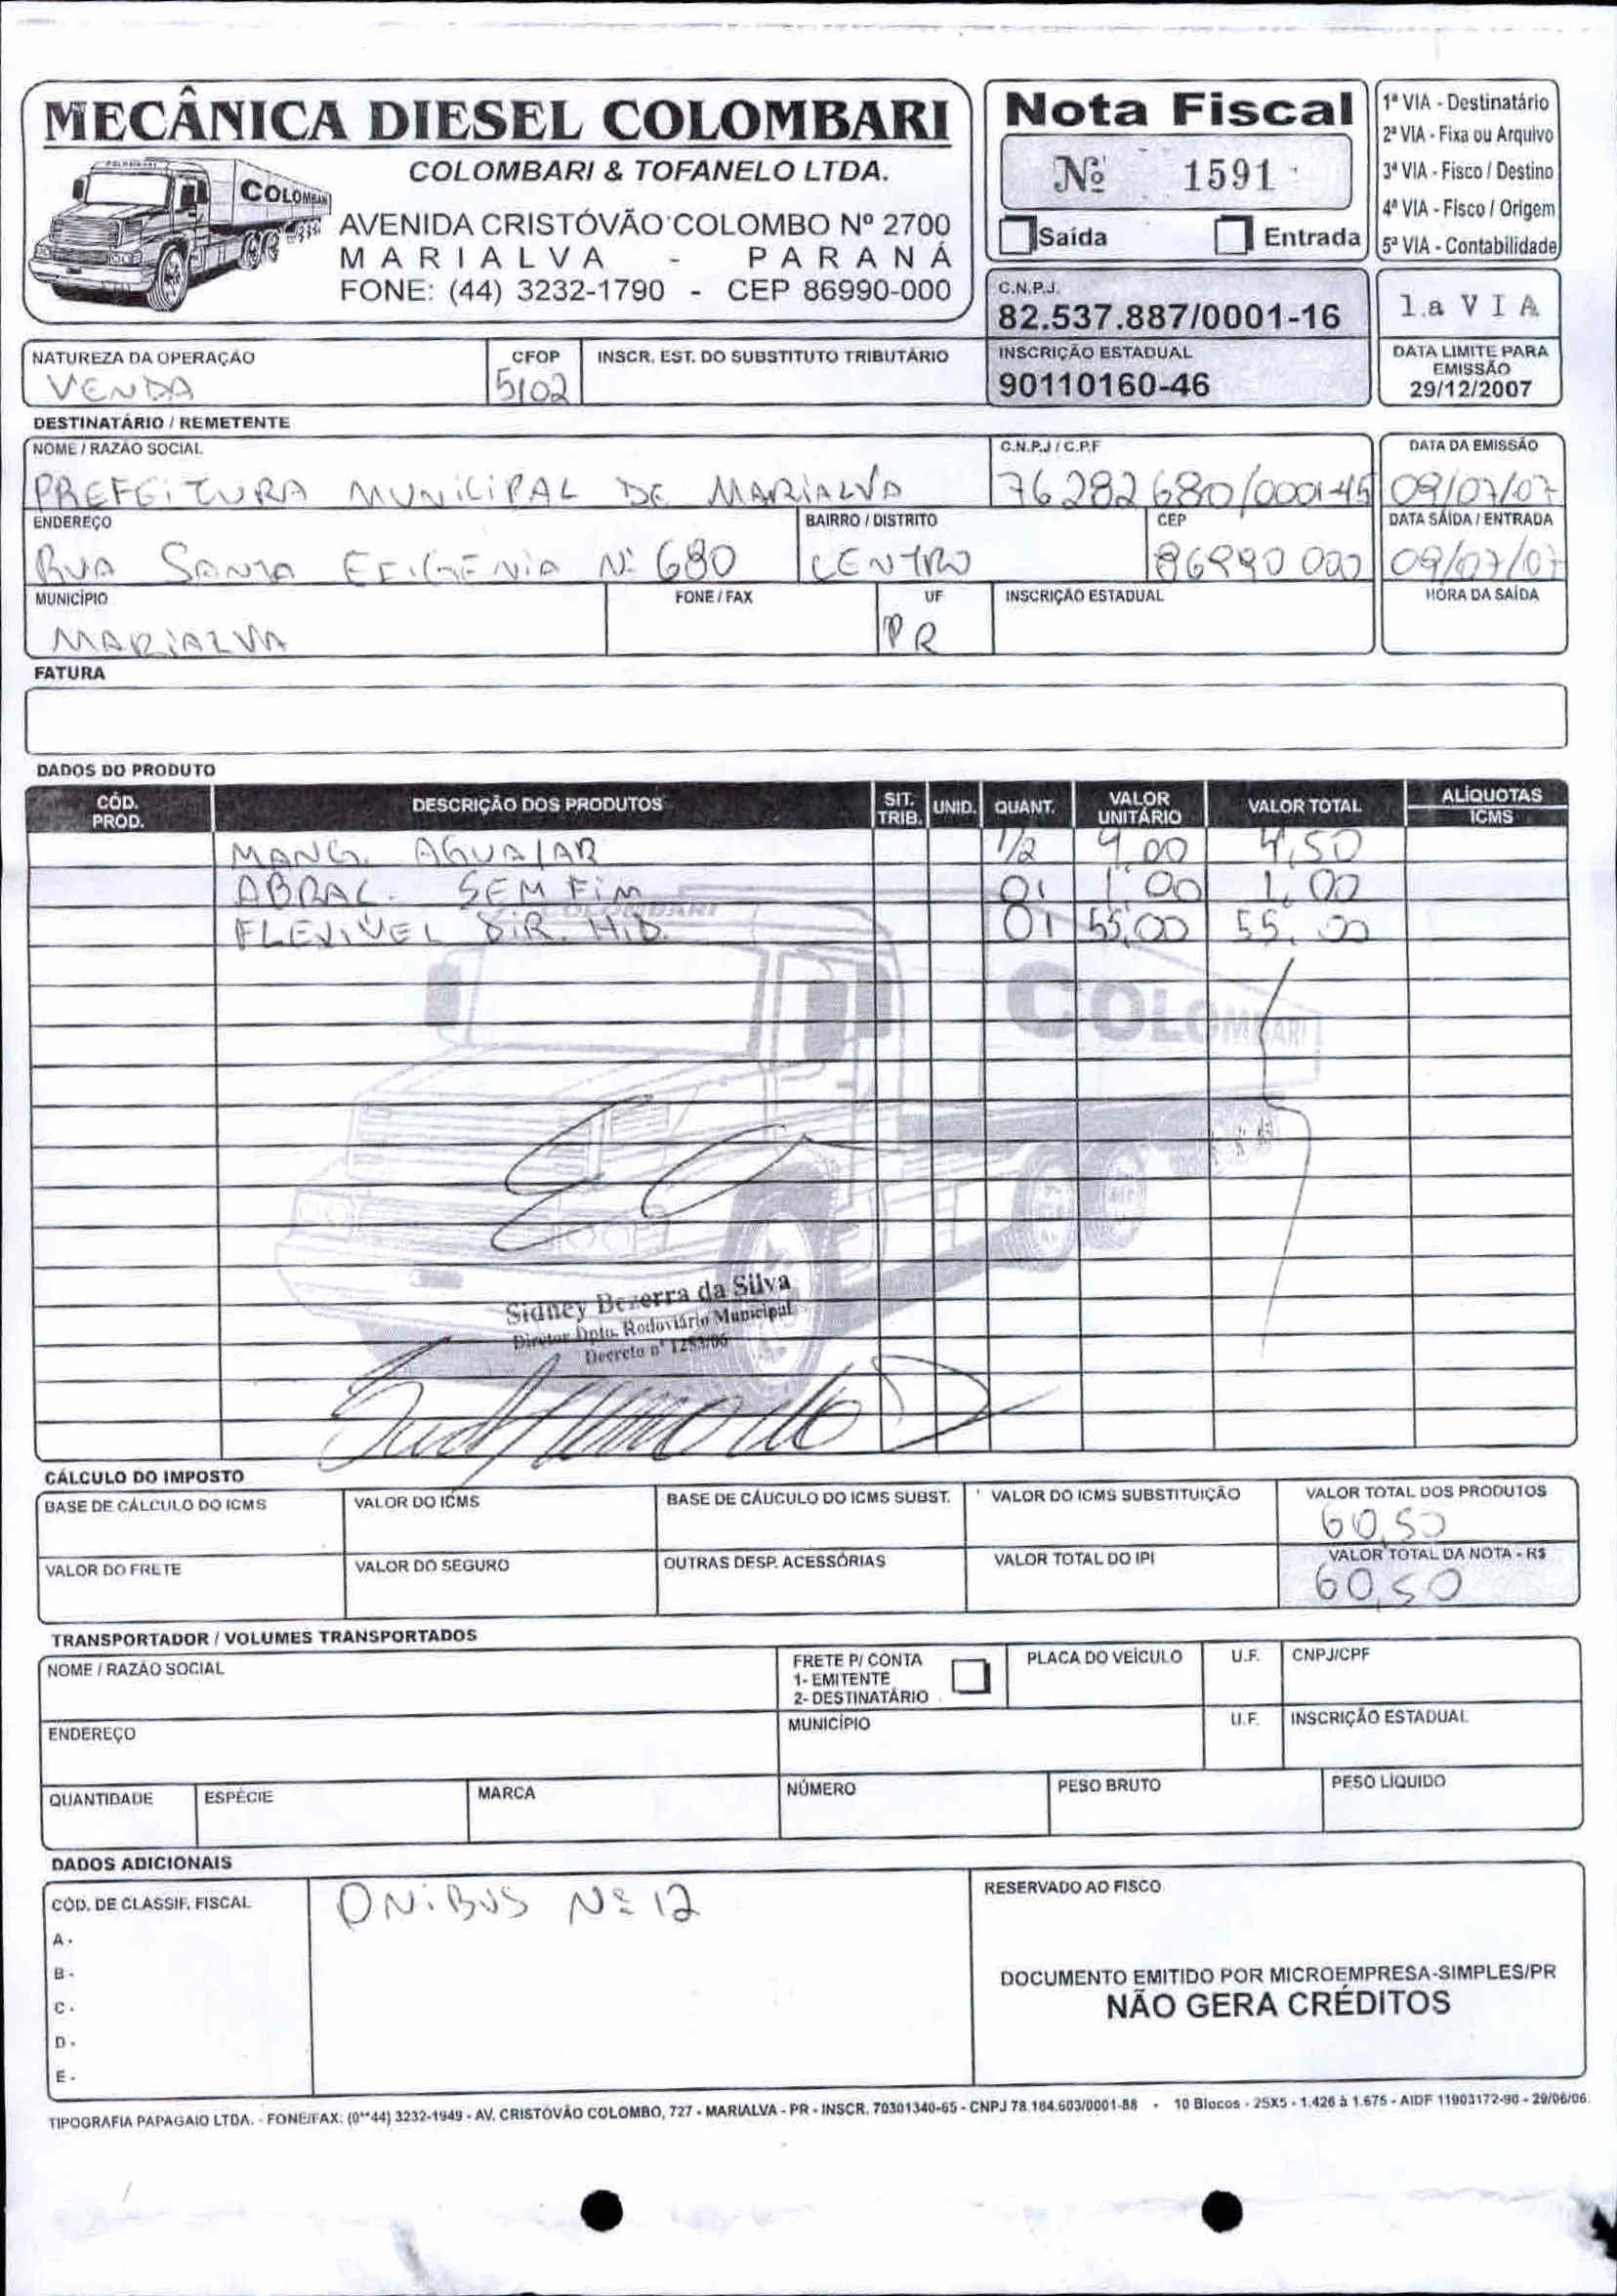 MECÂNICA DIESEL COLOMBARI
COLOMBARI & TOFANELO LTDA.
COLOMBARI
AVENIDA CRISTÓVÃO COLOMBO Nº 2700
MARIALVA - PARANÁ
FONE: (44) 3232-1790 - CEP 86990-000
Nota Fiscal
Nº 1591
Saída Entrada
1ª VIA - Destinatário
2ª VIA - Fixa ou Arquivo
3ª VIA - Fisco / Destino
4ª VIA - Fisco / Origem
5ª VIA - Contabilidade
C.N.P.J.
82.537.887/0001-16
1.a VIA
NATUREZA DA OPERAÇÃO CFOP INSCR. EST. DO SUBSTITUTO TRIBUTÁRIO INSCRIÇÃO ESTADUAL DATA LIMITE PARA EMISSÃO
VENDA 5102 90110160-46 29/12/2007
DESTINATÁRIO / REMETENTE
NOME / RAZÃO SOCIAL C.N.P.J / C.P.F DATA DA EMISSÃO
PREFEITURA MUNICIPAL DE MARIALVA 76282680/0001-45 09/07/07
ENDEREÇO BAIRRO / DISTRITO CEP DATA SAÍDA / ENTRADA
RUA SANTA EFIGENIA Nº 680 CENTRO 86990 000 09/07/07
MUNICÍPIO FONE / FAX UF INSCRIÇÃO ESTADUAL HORA DA SAÍDA
MARIALVA PR
FATURA
DADOS DO PRODUTO
CÓD. PROD. DESCRIÇÃO DOS PRODUTOS SIT. TRIB. UNID. QUANT. VALOR UNITÁRIO VALOR TOTAL ALÍQUOTAS ICMS
MANG. AGUA/AR 1/2 9,00 4,50
ABRAC. SEM FIM 01 1,00 1,00
FLEXIVEL DIR. HID. 01 55,00 55,00
COLOMBARI
COLOMBARI
Sidney Bezerra da Silva
Diretor Dpto. Rodoviário Municipal
Decreto nº 1253/06
CÁLCULO DO IMPOSTO
BASE DE CÁLCULO DO ICMS VALOR DO ICMS BASE DE CÁUCULO DO ICMS SUBST. VALOR DO ICMS SUBSTITUIÇÃO VALOR TOTAL DOS PRODUTOS
60,50
VALOR DO FRETE VALOR DO SEGURO OUTRAS DESP. ACESSÓRIAS VALOR TOTAL DO IPI VALOR TOTAL DA NOTA - R$
60,50
TRANSPORTADOR / VOLUMES TRANSPORTADOS
NOME / RAZÃO SOCIAL FRETE P/ CONTA PLACA DO VEÍCULO U.F. CNPJ/CPF
1- EMITENTE
2- DESTINATÁRIO
ENDEREÇO MUNICÍPIO U.F. INSCRIÇÃO ESTADUAL
QUANTIDADE ESPÉCIE MARCA NÚMERO PESO BRUTO PESO LÍQUIDO
DADOS ADICIONAIS
CÓD. DE CLASSIF. FISCAL ONIBUS Nº 12 RESERVADO AO FISCO
A -
B -
C -
D -
E -
DOCUMENTO EMITIDO POR MICROEMPRESA-SIMPLES/PR
NÃO GERA CRÉDITOS
TIPOGRAFIA PAPAGAIO LTDA. - FONE/FAX: (0**44) 3232-1949 - AV. CRISTÓVÃO COLOMBO, 727 - MARIALVA - PR - INSCR. 70301340-65 - CNPJ 78.184.603/0001-88 - 10 Blocos - 25X5 - 1.426 à 1.675 - AIDF 11903172-90 - 29/06/06.